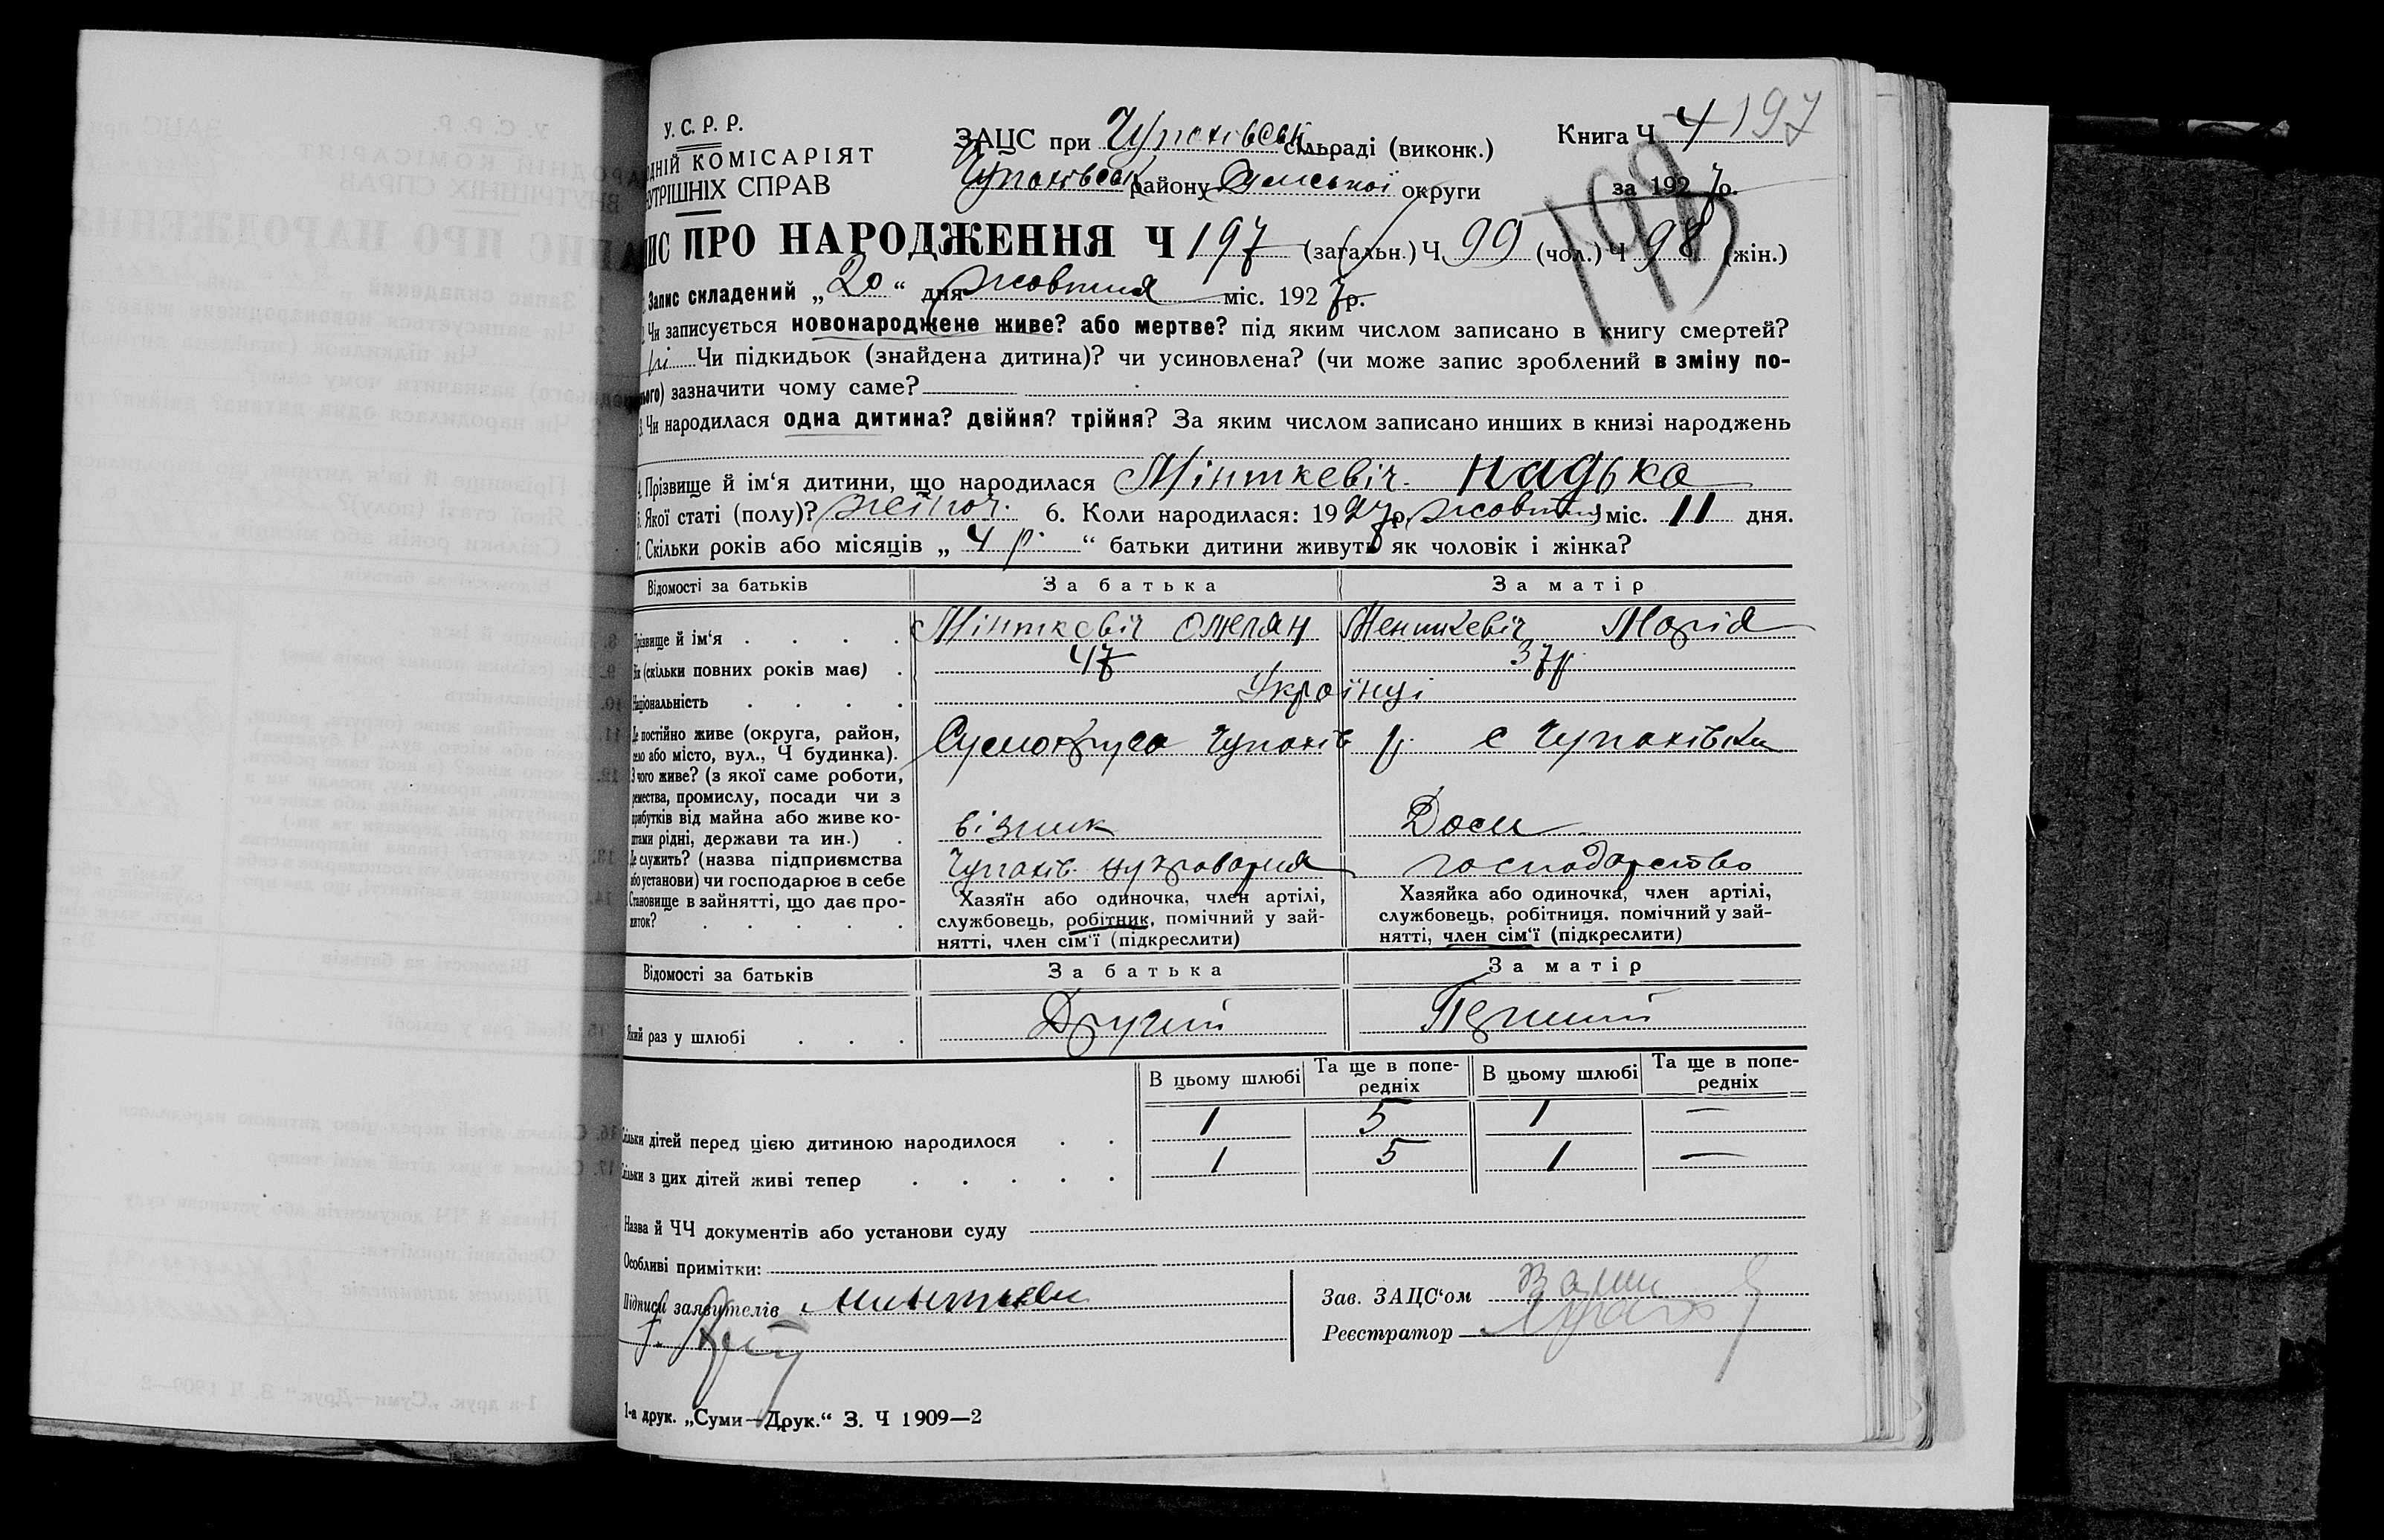 У. С. Р. Р.
ДНІЙ КОМІСАРІЯТ
УТРІШНІХ СПРАВ
ЗАЦС при Чупахівськ. сільраді (виконк.)
Чупахівськ району Сумської округи
Книга Ч 4 197
за 1927 р.
ИС ПРО НАРОДЖЕННЯ Ч 197 (загальн.) Ч 99 (чол.) Ч 98 (жін.)
Запис складений „20“ дня жовтня міс. 1927 р.
Чи записується новонароджене живе? або мертве? під яким числом записано в книгу смертей?
ні Чи підкидьок (знайдена дитина)? чи усиновлена? (чи може запис зроблений в зміну по-
ього) зазначити чому саме?
3. Чи народилася одна дитина? двійня? трійня? За яким числом записано инших в книзі народжень
4. Прізвище й ім‘я дитини, що народилася Мінткевіч. Надька
5. Якої статі (полу)? жіноч. 6. Коли народилася: 1927 р. жовтня міс. 11 дня.
7. Скільки років або місяців „ 4 р. “ батьки дитини живуть як чоловік і жінка?
Відомості за батьків За батька За матір
Прізвище й ім‘я . . . . Мінткевіч Омелян Менткевіч Марія
Вік (скільки повних років має) . 47 37 р.
Національність . . . . Українці
Де постійно живе (округа, район,
село або місто, вул., Ч будинка). Сумокруга Чупахів р. с Чупахівки
З чого живе? (з якої саме роботи,
ремества, промислу, посади чи з
прибутків від майна або живе ко-
штами рідні, держави та ин.) . візник Дом
Де служить? (назва підприємства
або установи) чи господарює в себе Чупахів. цукроварня господарство
Становище в зайнятті, що дає про-
житок? . . . . .
Хазяїн або одиночка, член артілі,
службовець, робітник, помічний у зай-
нятті, член сім‘ї (підкреслити)
Хазяйка або одиночка, член артілі,
службовець, робітниця, помічний у зай-
нятті, член сім‘ї (підкреслити)
Відомості за батьків За батька За матір
Який раз у шлюбі . . . Другий Перший
В цьому шлюбі Та ще в попе-редніх В цьому шлюбі Та ще в попе-редніх
Скільки дітей перед цією дитиною народилося . . 1 5 1 —
Скільки з цих дітей живі тепер . . . . . 1 5 1 —
Назва й ЧЧ документів або установи суду
Особливі примітки:
Підписи заявителів
Зав. ЗАЦС‘ом
Реєстратор
1-а друк. „Суми—Друк.“ З. Ч 1909—2